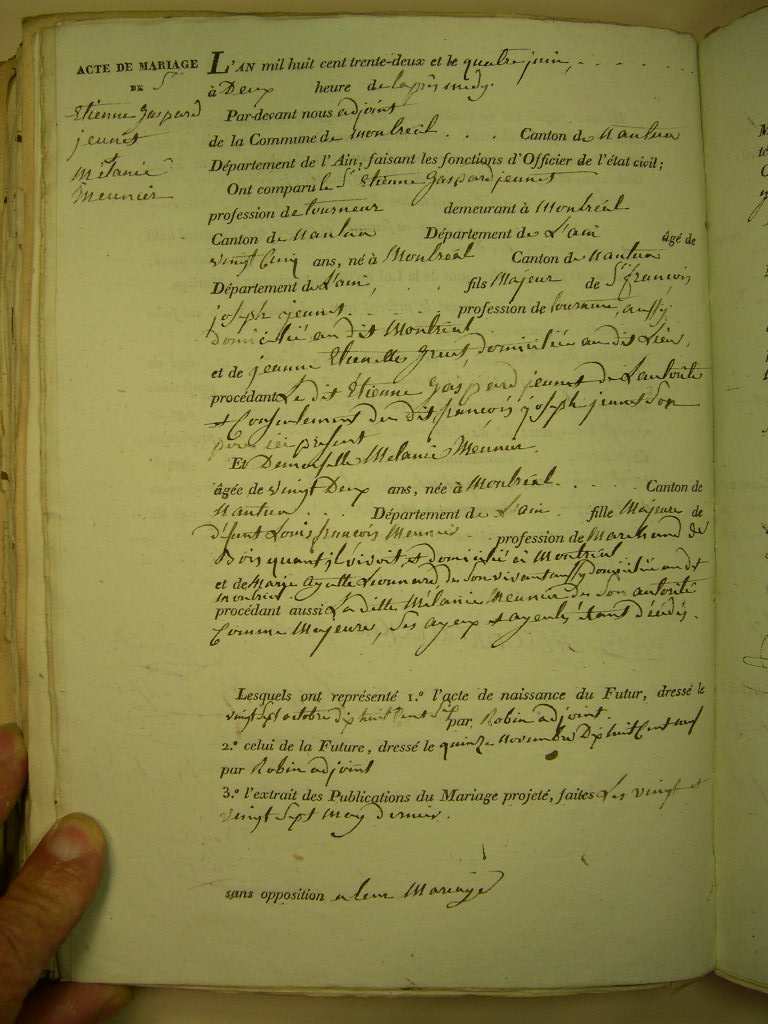 ACTE DE MARIAGE
DE Sr
Etienne Gaspard
jeunet
et
Mélanie
Meunier
L'AN mil huit cent trente-deux et le quatre juin,
à Deux heure de laprès midy.
Par-devant nous adjoint
de la Commune de montréal . . . Canton de nantua
Département de l'Ain, faisant les fonctions d'Officier de l'état civil;
Ont comparu le Sr Etienne Gaspard jeunet
profession de tourneur demeurant à Montréal
Canton de nantua Département de L'ain âgé de
vingt Cinq ans, né à Montréal Canton de nantua
Département de L'ain, . . fils Majeur de Sr françois
joseph jeunet . . . . profession de tourneur, aussy
domicilié au dit Montréal
et de jeanne Etiennette domiciliée au dit Lieu,
procédant Le dit Etienne Gaspard jeunet de Lautorité
et Consentement du dit françois joseph jeunet Son
père ici présent
Et Demoiselle Mélanie Meunier.
âgée de vingt Deux ans, née à Montréal . . . . Canton de
Nantua . . . Département de L'ain . fille Majeure de
Défunt Louis françois Meunier . . profession de Marchand de
Bois quant il vivoit, et domicilié à Montréal
et de Marie Agathe de son vivant aussy domiciliée au dit
montréal
procédant aussi La ditte Mélanie Meunier de Son autorité
Comme Majeure, Ses ayeux et ayeules étant décédés.
Lesquels ont représenté 1.º l'acte de naissance du Futur, dressé le
vingt Sept octobre dix huit Cent Six par Robin adjoint.
2.º celui de la Future, dressé le quinze novembre Dix huit Cent neuf
par Robin adjoint
3.º l'extrait des Publications du Mariage projeté, faites Les vingt et
vingt Sept May dernier.
sans opposition a leur Mariage